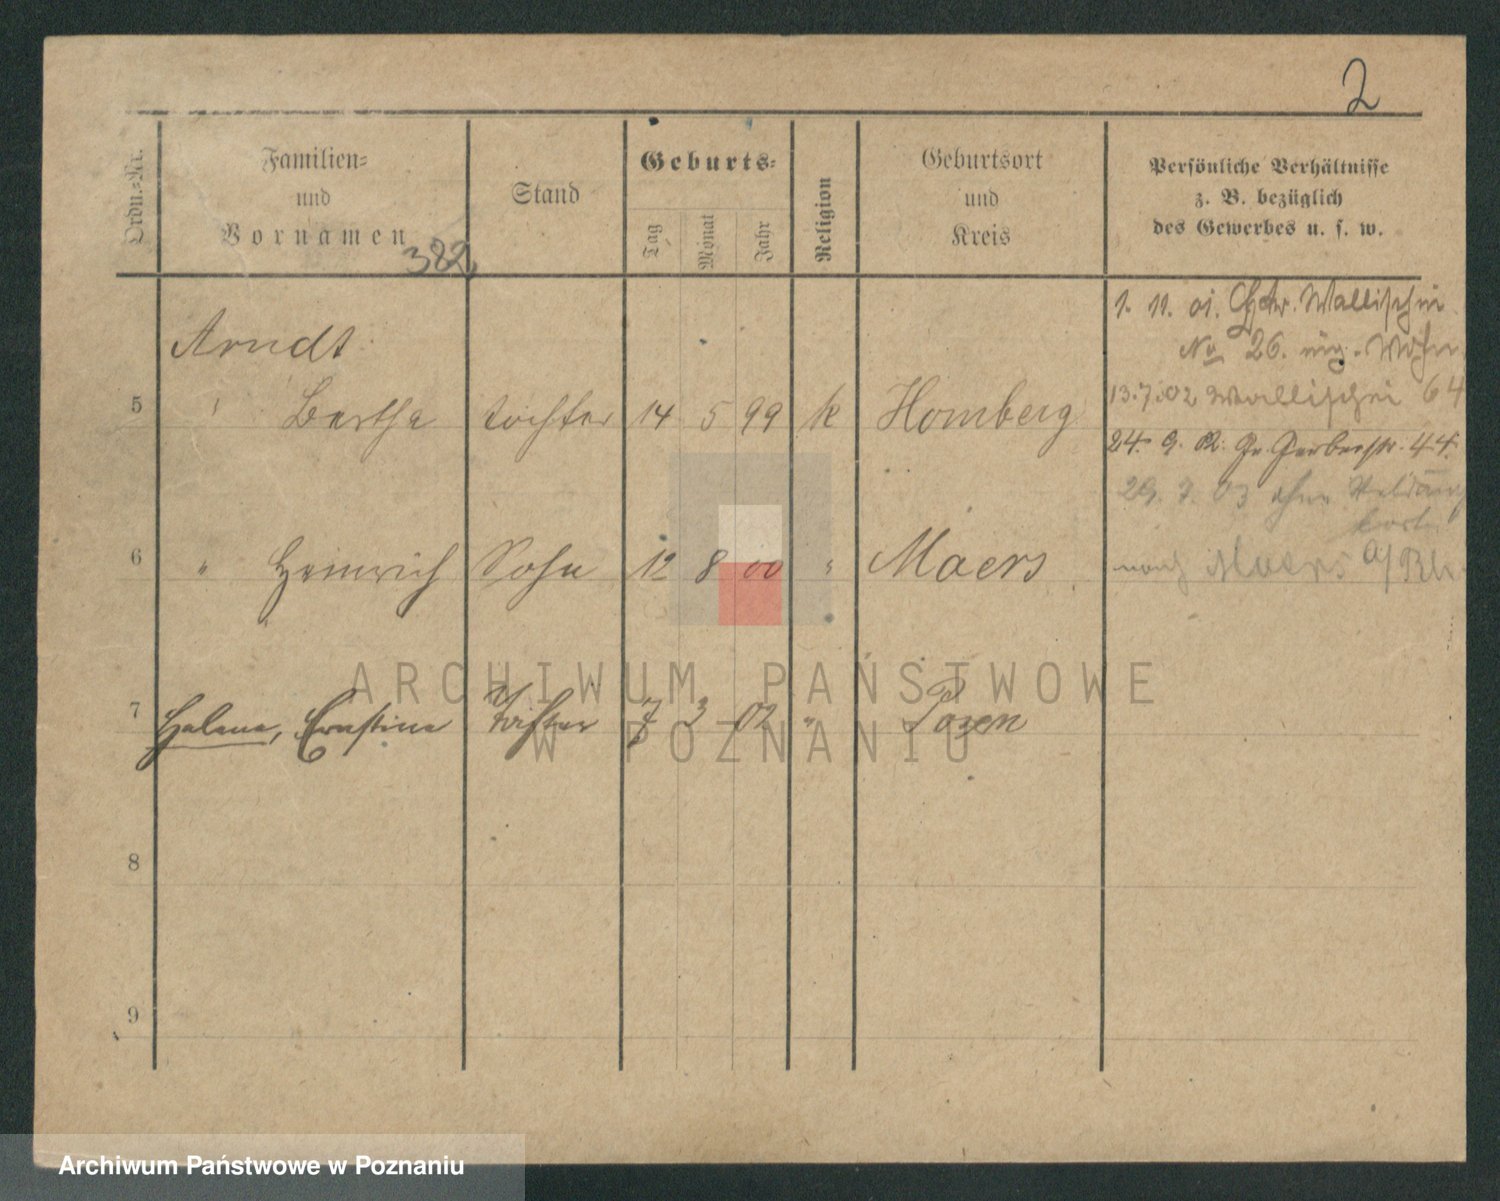 2
Ordn.-Nr.
Familien-
und
Vornamen
382
Stand
Geburts-
Tag
Monat
Jahr
Religion
Geburtsort
und
Kreis
Persönliche Verhältnisse
z. B. bezüglich
des Gewerbes u. s. w.
1. 11. 01. Wallischei
No 26.
Arndt
5 " Bertha tochter 14 5 99 k Homberg
13.7.02 Wallischei 64
24. 9. 02. Gr Gerberstr. 44.
29. 7. 03 ohne
6 " Heinrich Sohn 12 8 00 " Maers
nach Maers a/Rh
7 Helene, Ernstine Tochter 7 3 02 " Posen
8
9
ARCHIWUM PAŃSTWOWE
W POZNANIU
Archiwum Państwowe w Poznaniu